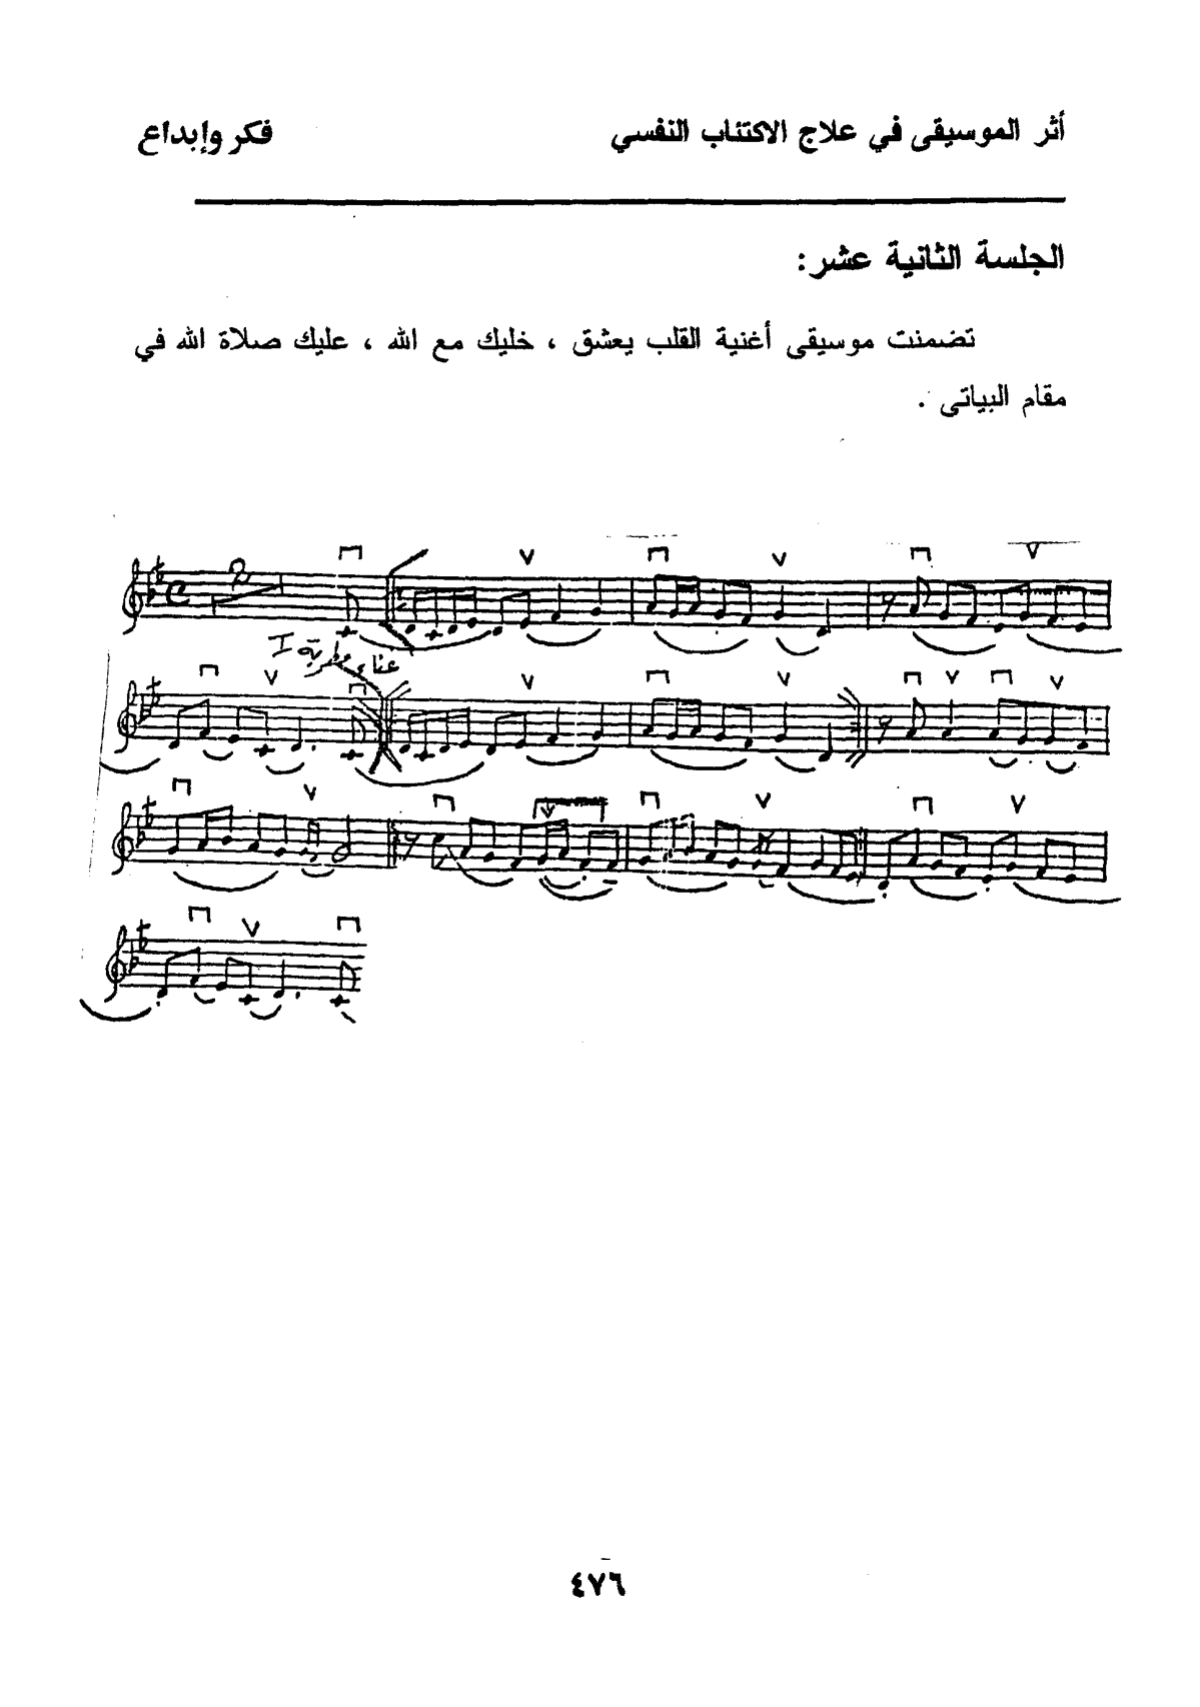 أثر الموسيقى في علاج الاكتئاب النفسي فكر وإبداع
الجلسة الثانية عشر:
تضمنت موسيقى أغنية القلب يعشق ، خليك مع الله ، عليك صلاة الله في
مقام البياتى .
غناء
٤٧٦